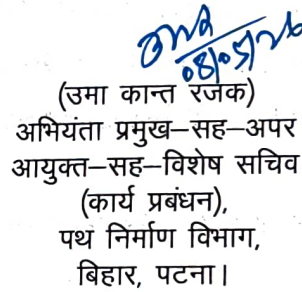 08/05/26
(उमा कान्त रजक)
अभियंता प्रमुख–सह–अपर
आयुक्त–सह–विशेष सचिव
(कार्य प्रबंधन),
पथ निर्माण विभाग,
बिहार, पटना।